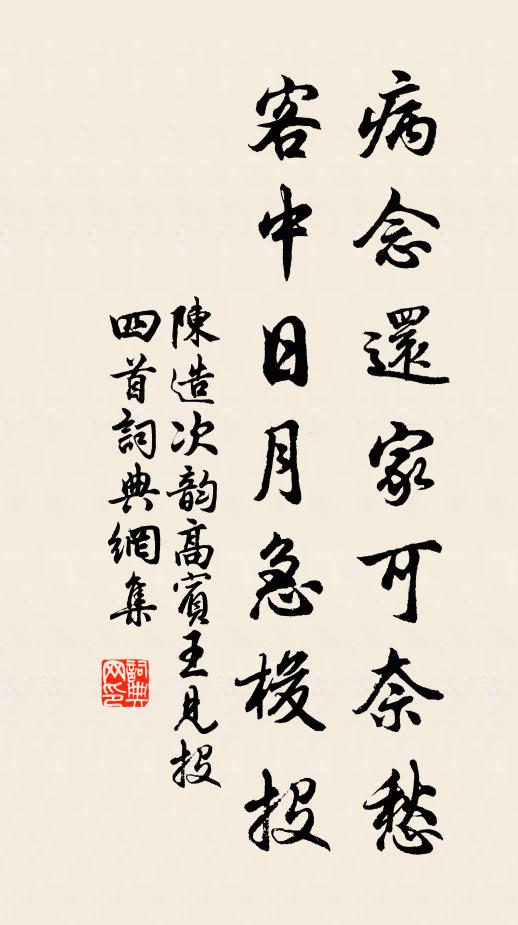 病念還家可奈愁
客中日月急梭投
陳造次韵高賓王見投
四首詞典網集
詞典网印